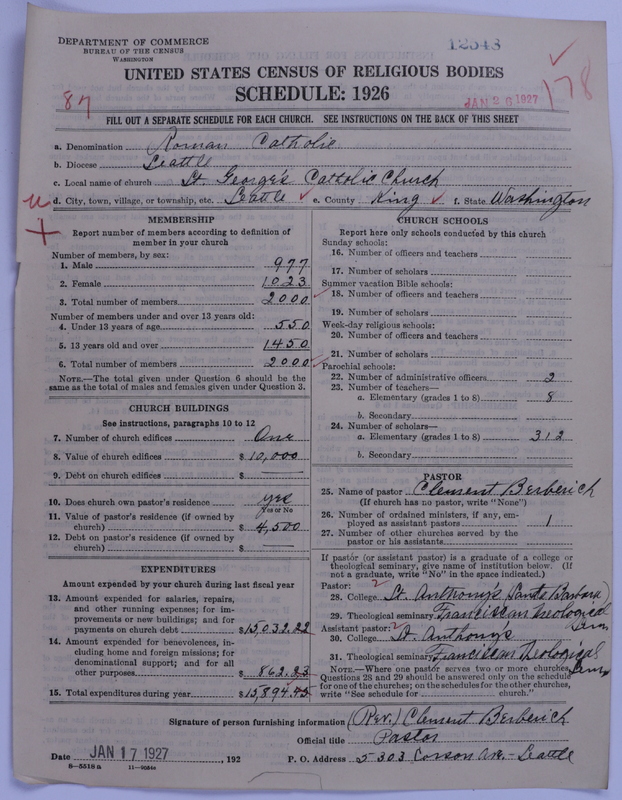 DEPARTMENT OF COMMERCE
BUREAU OF THE CENSUS
WASHINGTON
12543
UNITED STATES CENSUS OF RELIGIOUS BODIES
SCHEDULE: 1926
87
JAN 26 1927
178
FILL OUT A SEPARATE SCHEDULE FOR EACH CHURCH. SEE INSTRUCTIONS ON THE BACK OF THIS SHEET
a. Denomination Roman Catholic
b. Diocese Seattle
c. Local name of church St. George's Catholic Church
d. City, town, village, or township, etc. Seattle e. County King f. State Washington
MEMBERSHIP
Report number of members according to definition of
member in your church
Number of members, by sex:
1. Male 977
2. Female 1023
3. Total number of members 2000
Number of members under and over 13 years old:
4. Under 13 years of age 550
5. 13 years old and over 1450
6. Total number of members 2000
NOTE.—The total given under Question 6 should be
same as the total of males and females given under Question 3.
CHURCH BUILDINGS
See instructions, paragraphs 10 to 12
7. Number of church edifices One
8. Value of church edifices $ 10,000
9. Debt on church edifices $
10. Does church own pastor's residence yes
Yes or No
11. Value of pastor's residence (if owned by
church) $ 4,500
12. Debt on pastor's residence (if owned by
church) $
EXPENDITURES
Amount expended by your church during last fiscal year
13. Amount expended for salaries, repairs,
and other running expenses; for im-
provements or new buildings; and for
payments on church debt $ 15,032.22
14. Amount expended for benevolences, in-
cluding home and foreign missions; for
denominational support; and for all
other purposes $ 862.23
15. Total expenditures during year $ 15,894.45
CHURCH SCHOOLS
Report here only schools conducted by this church
Sunday schools:
16. Number of officers and teachers
17. Number of scholars
Summer vacation Bible schools:
18. Number of officers and teachers
19. Number of scholars
Week-day religious schools:
20. Number of officers and teachers
21. Number of scholars
Parochial schools:
22. Number of administrative officers 2
23. Number of teachers—
a. Elementary (grades 1 to 8) 8
b. Secondary
24. Number of scholars—
a. Elementary (grades 1 to 8) 312
b. Secondary
PASTOR
25. Name of pastor Clement Berberich
(If church has no pastor, write "None")
26. Number of ordained ministers, if any, em-
ployed as assistant pastors 1
27. Number of other churches served by the
pastor or his assistants
If pastor (or assistant pastor) is a graduate of a college or
theological seminary, give name of institution below. (If
not a graduate, write "No" in the space indicated.)
Pastor: 2
28. College St. Anthony's (Santa Barbara)
29. Theological seminary Franciscan Theological Sem
Assistant pastor: 2
30. College St. Anthonys
31. Theological seminary Franciscan Theological Sem
NOTE.—Where one pastor serves two or more churches,
Questions 28 and 29 should be answered only on the schedule
for one of the churches; on the schedules for the other churches,
write "See schedule for church."
Signature of person furnishing information (Rev.) Clement Berberich
Official title Pastor
Date JAN 17 1927, 192 P. O. Address 5303 Corson Ave - Seattle
8—5518a 11—9034a